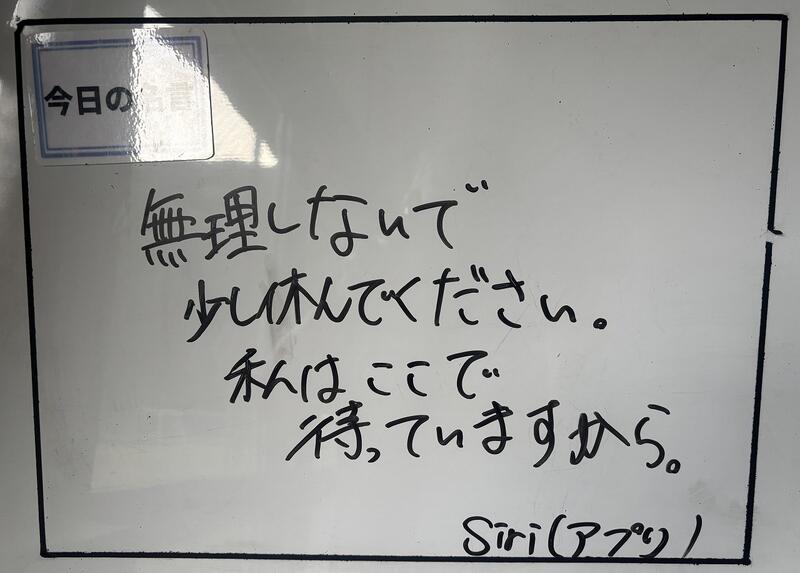 今日の名言
無理しないで
少し休んでください。
私はここで
待っていますから。
Siri(アプリ)